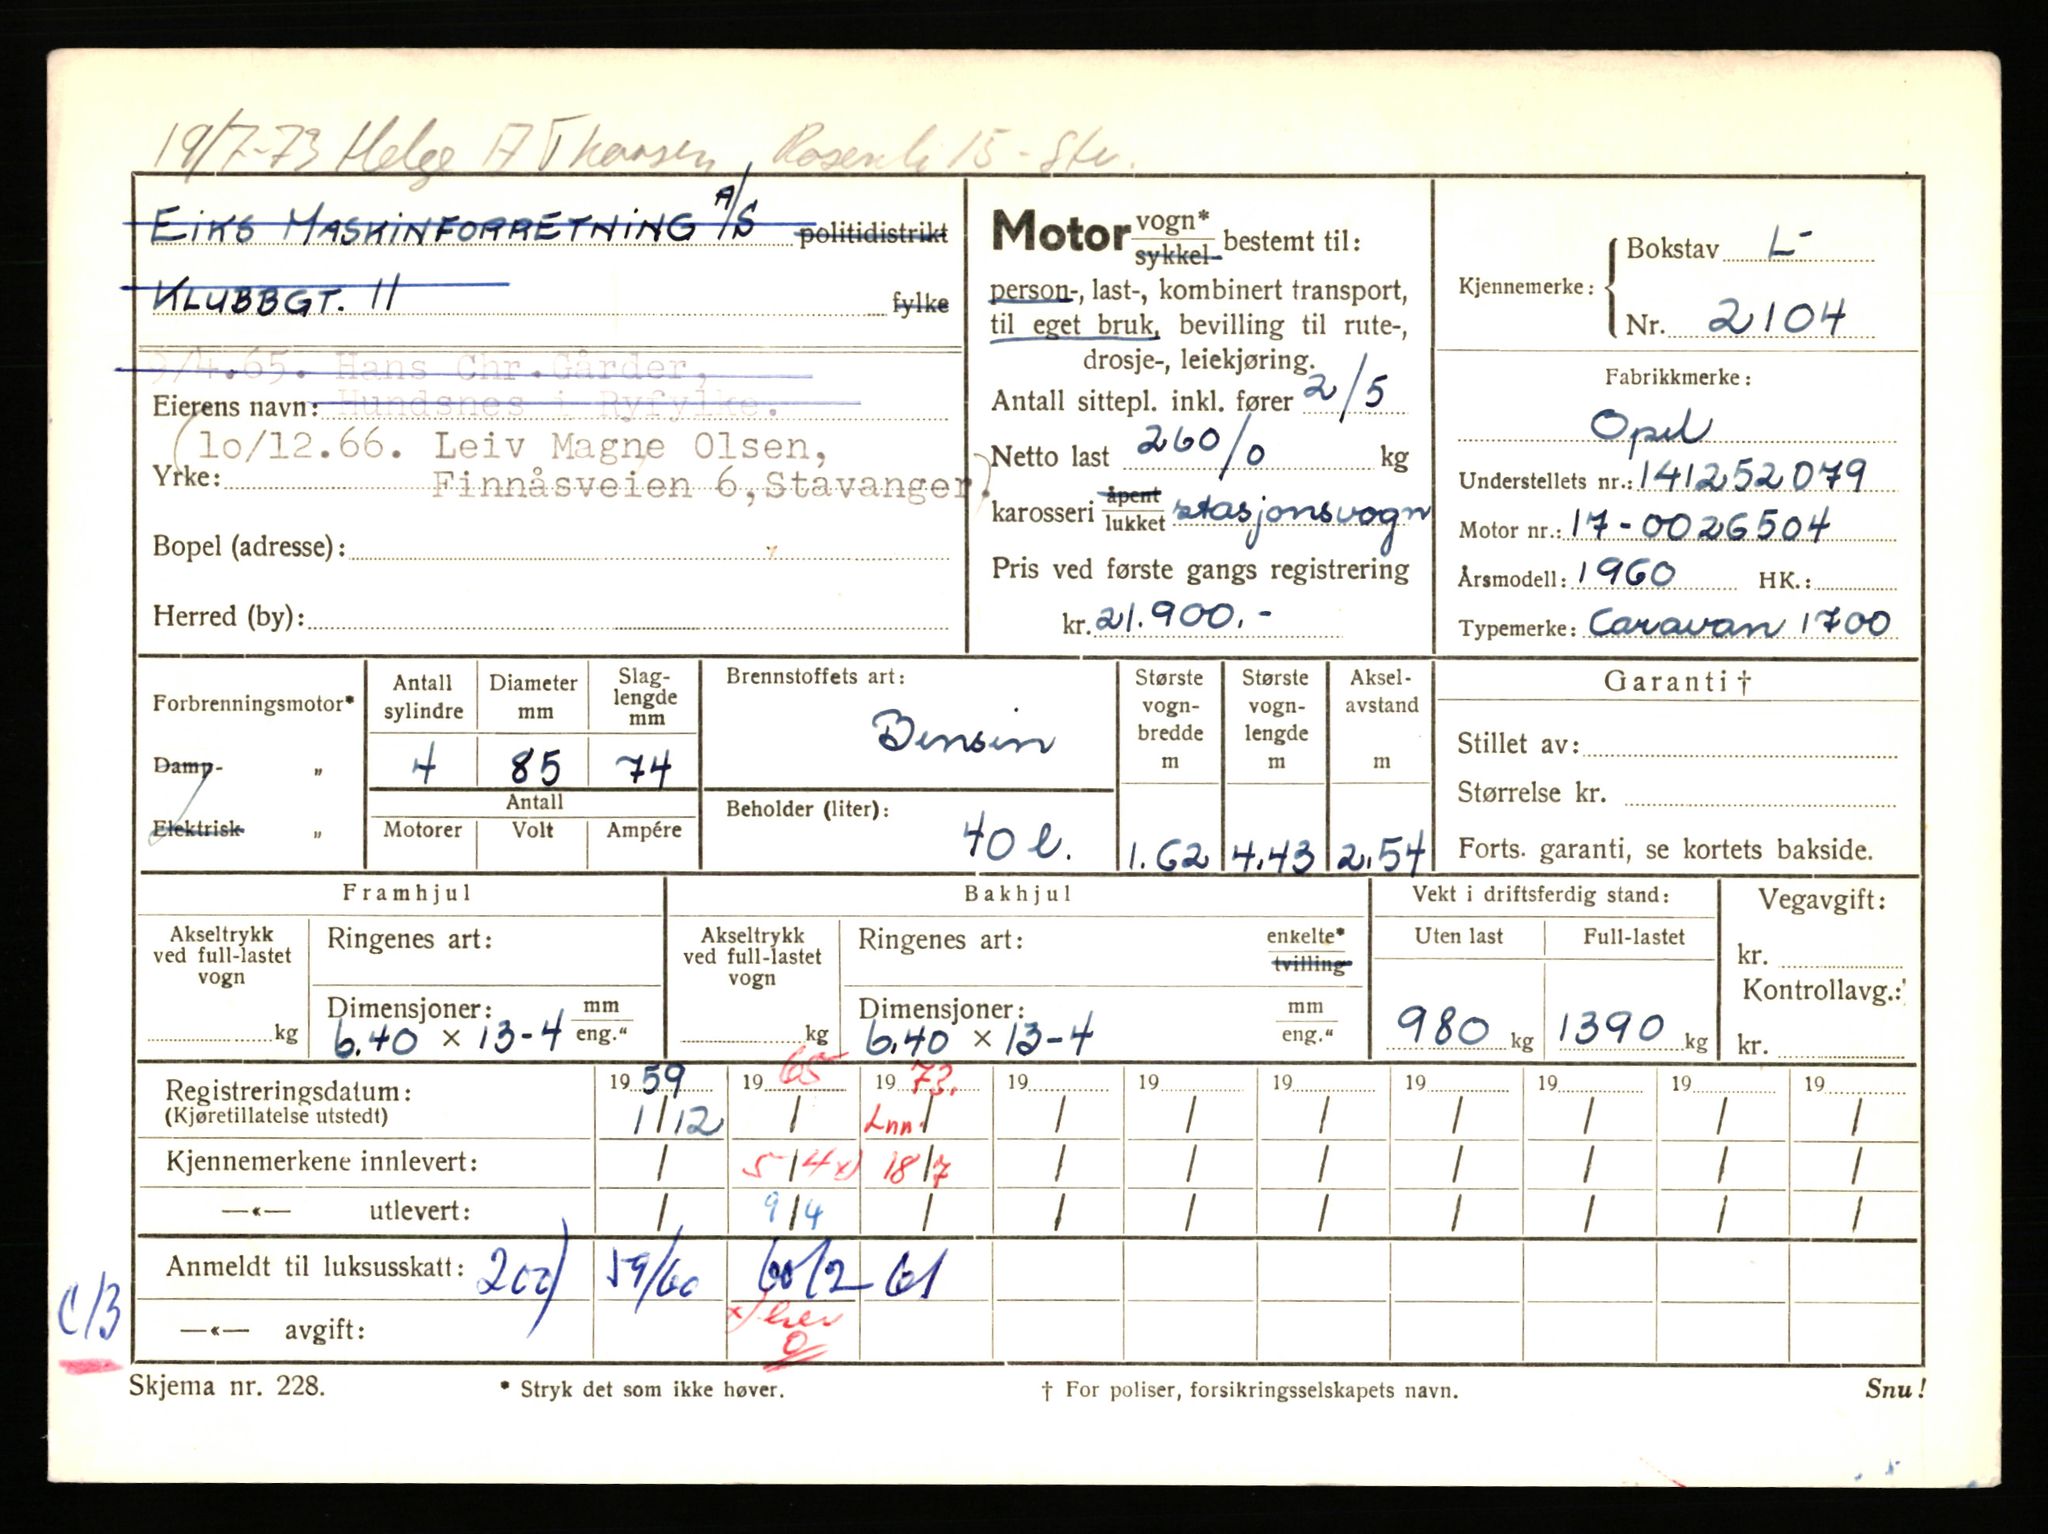 19/7-73 Helge A Thorsen, Rosenli 15 - Stv.
EIKS MASKINFORRETNING A/S politidistrikt
KLUBBGT. 11 fylke
9/4.65. Hans Chr.Gårder,
Eierens navn: Hundsnes i Ryfylke.
(10/12.66. Leiv Magne Olsen,
Yrke: Finnåsveien 6,Stavanger.)
Bopel (adresse):
Herred (by):
Motor vogn* sykkel- bestemt til:
person-, last-, kombinert transport,
til eget bruk, bevilling til rute-,
drosje-, leiekjøring.
Antall sittepl. inkl. fører 2/5
Netto last 260/0 kg
karosseri åpent lukket stasjonsvogn
Pris ved første gangs registrering
kr. 21.900.-
Kjennemerke: Bokstav L-
Nr. 2104
Fabrikkmerke:
Opel
Understellets nr.: 141252079
Motor nr.: 17-0026504
Årsmodell: 1960 HK.:
Typemerke: Caravan 1700
Forbrenningsmotor*
Damp- „
Elektrisk „
Antall sylindre Diameter mm Slag-lengde mm
4 85 74
Antall
Motorer Volt Ampére
Brennstoffets art:
Bensin
Beholder (liter):
40 l.
Største vogn-bredde m Største vogn-lengde m Aksel-avstand m
1.62 4.43 2.54
Garanti †
Stillet av:
Størrelse kr.
Forts. garanti, se kortets bakside.
Framhjul
Akseltrykk ved full-lastet vogn
kg
Ringenes art:
Dimensjoner: mm eng."
6.40 × 13-4
Bakhjul
Akseltrykk ved full-lastet vogn
kg
Ringenes art: enkelte* tvilling
Dimensjoner: mm eng."
6.40 × 13-4
Vekt i driftsferdig stand:
Uten last Full-lastet
980 kg 1390 kg
Vegavgift:
kr.
Kontrollavg.:
kr.
Registreringsdatum: 19 59 19 65 19 73. 19 19 19 19 19 19 19
(Kjøretillatelse utstedt) 1/12 / Lnn. / / / / / / / /
Kjennemerkene innlevert: / 5/4 x) 18/7 / / / / / / /
—«— utlevert: / 9/4 / / / / / / / /
Anmeldt til luksusskatt: 200) 59/60 60/2 61
C/3
—«— avgift: x)
Skjema nr. 228. * Stryk det som ikke høver. † For poliser, forsikringsselskapets navn. Snu!